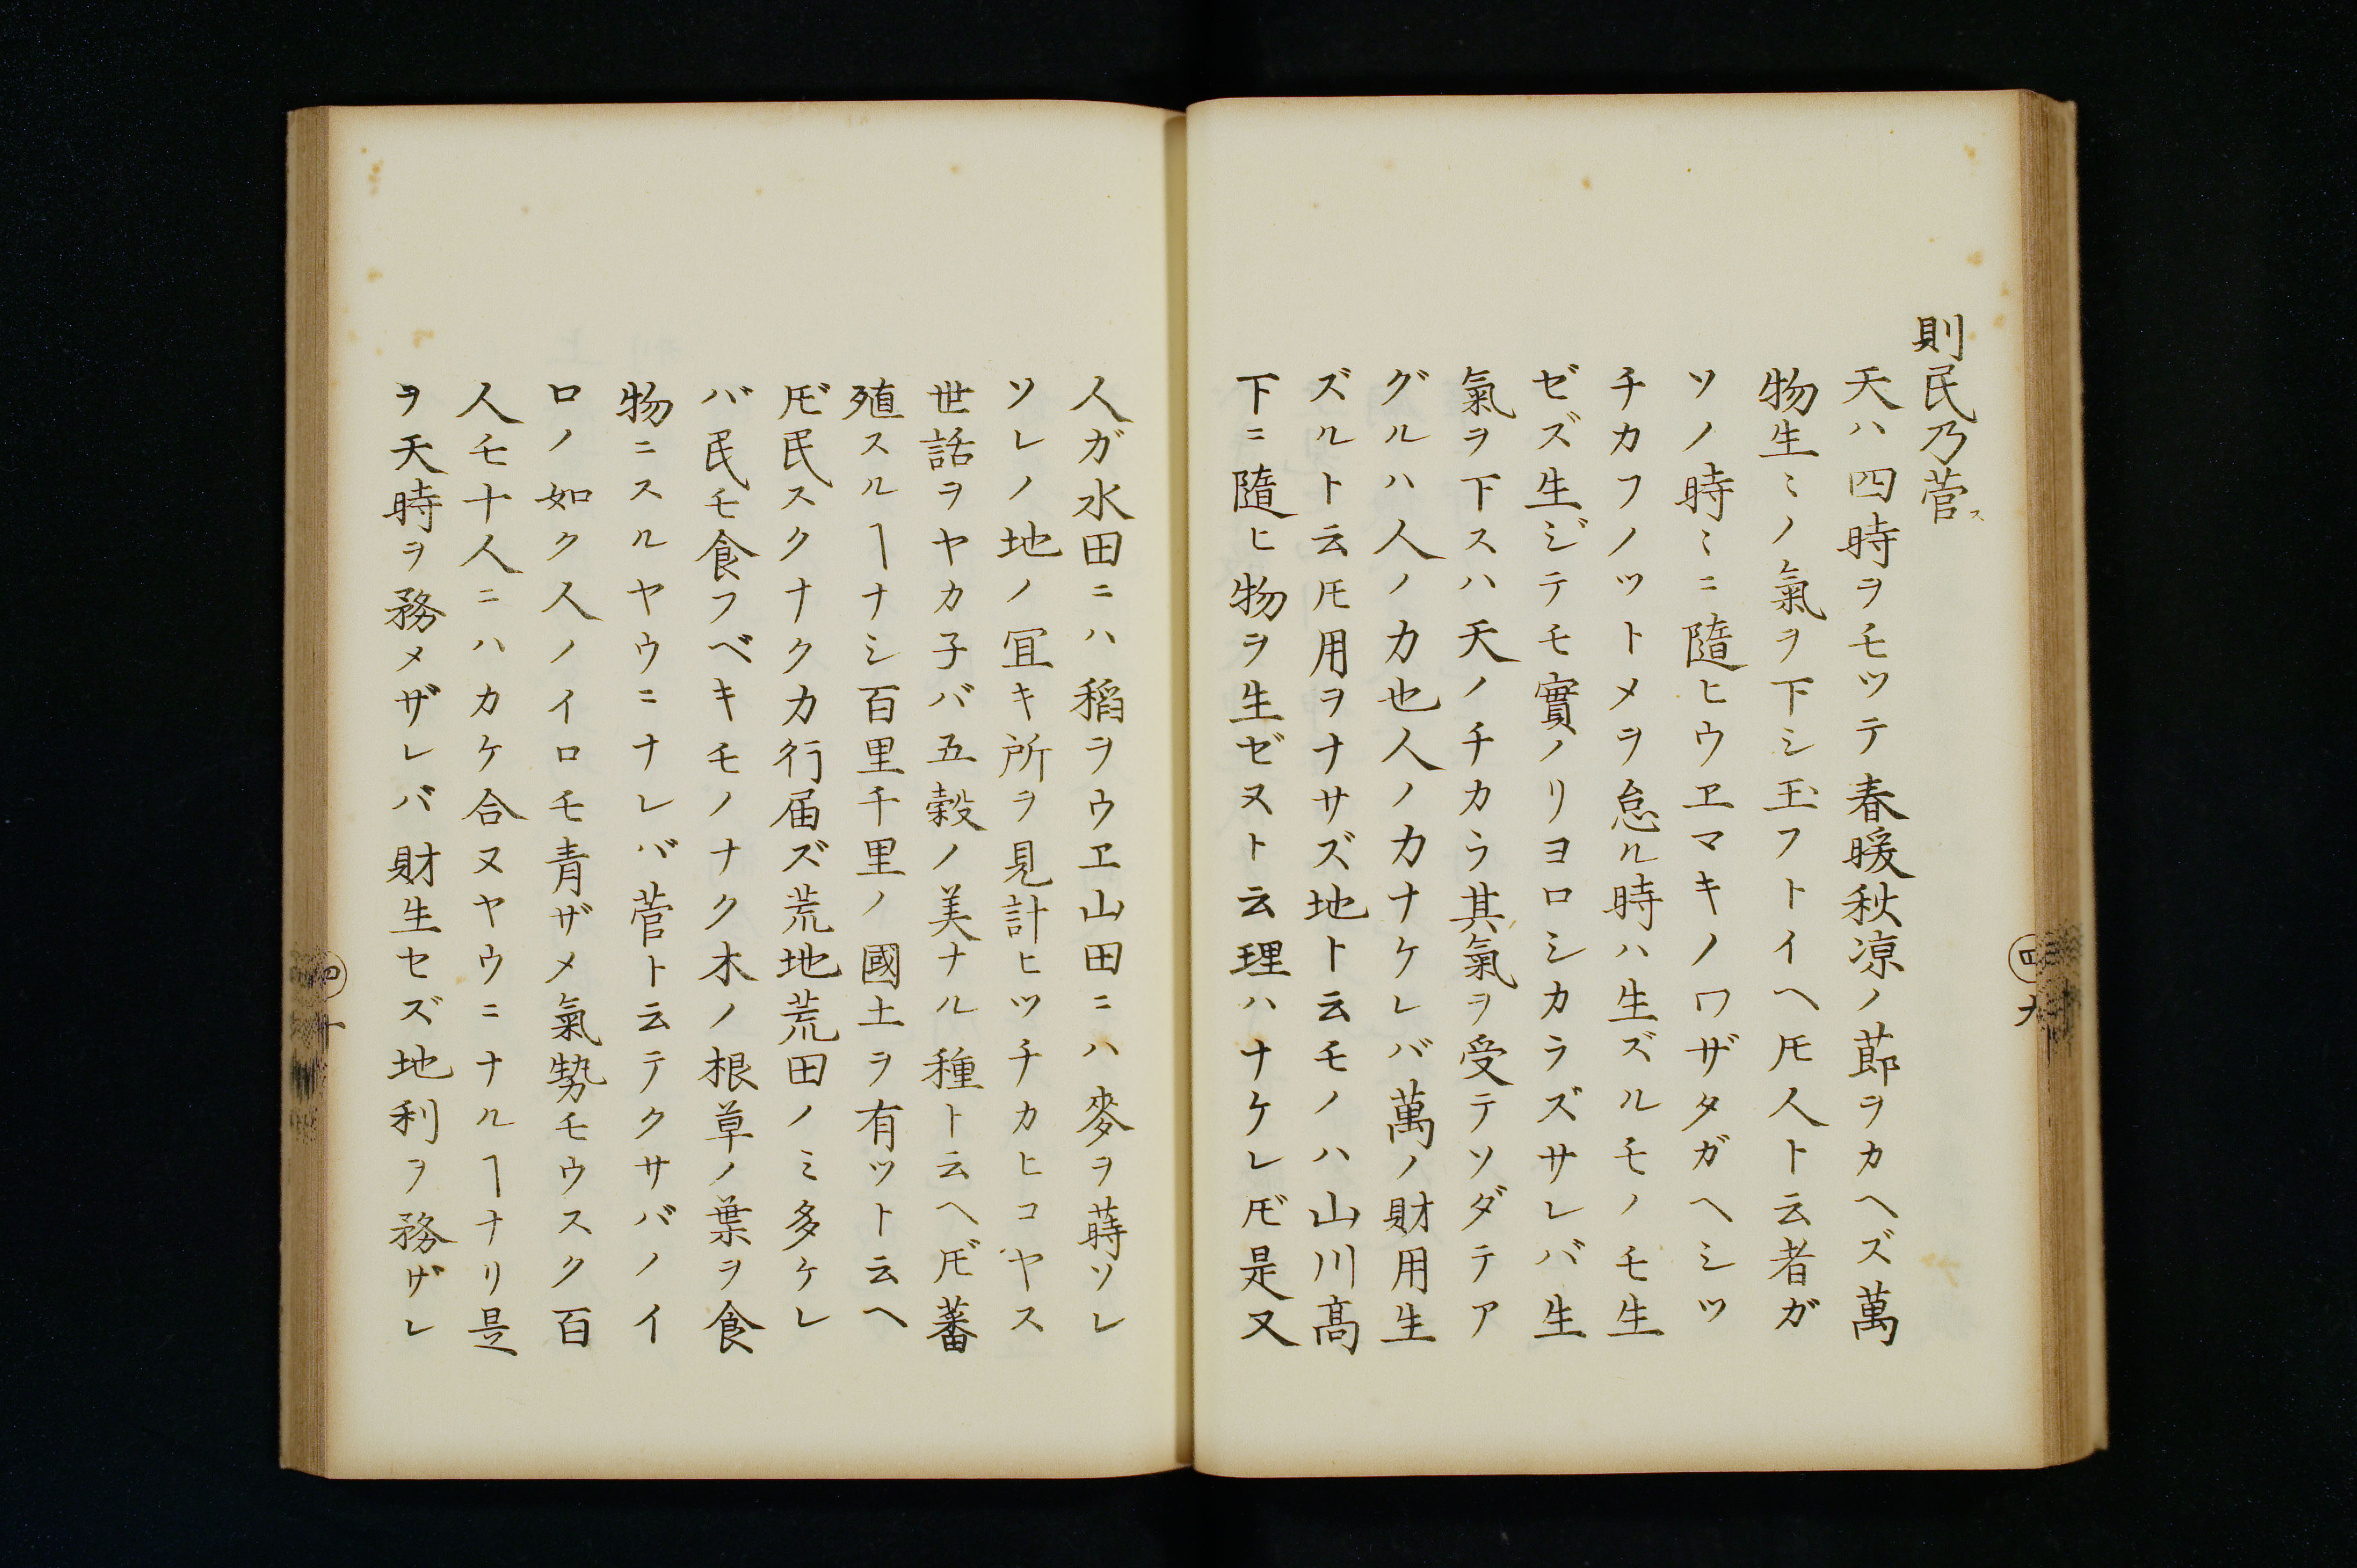 則民乃菅ス
天ハ四時ヲモツテ春暖秋凉ノ莭ヲカヘズ萬
物生ミノ氣ヲ下シ玉フトイヘ𪜈人ト云者ガ
ソノ時ミニ隨ヒウヱマキノワザタガヘシツ
チカフノツトメヲ怠ル時ハ生ズルモノモ生
ゼズ生ジテモ實ノリヨロシカラズサレバ生
氣ヲ下スハ天ノチカラ其氣ヲ受テソダテア
グルハ人ノ力也人ノ力ナケレバ萬ノ財用生
ズルト云𪜈用ヲナサズ地ト云モノハ山川髙
下ニ隨ヒ物ヲ生ゼヌト云理ハナケレ𪜈是又
四 九
人ガ水田ニハ稻ヲウヱ山田ニハ麥ヲ蒔ソレ
ソレノ地ノ冝キ所ヲ見計ヒツチカヒコヤス
世話ヲヤカ子バ五穀ノ美ナル種ト云ヘ𪜈蕃
殖スルヿナシ百里千里ノ國土ヲ有ツト云ヘ
𪜈民スクナクカ行届ズ荒地荒田ノミ多ケレ
バ民モ食フベキモノナク木ノ根草ノ葉ヲ食
物ニスルヤウニナレバ菅ト云テクサバノイ
ロノ如ク人ノイロモ青ザメ氣勢モウスク百
人モ十人ニハカケ合ヌヤウニナルヿナリ是
ヲ天時ヲ務メザレバ財生セズ地利ヲ務ザレ
四 十